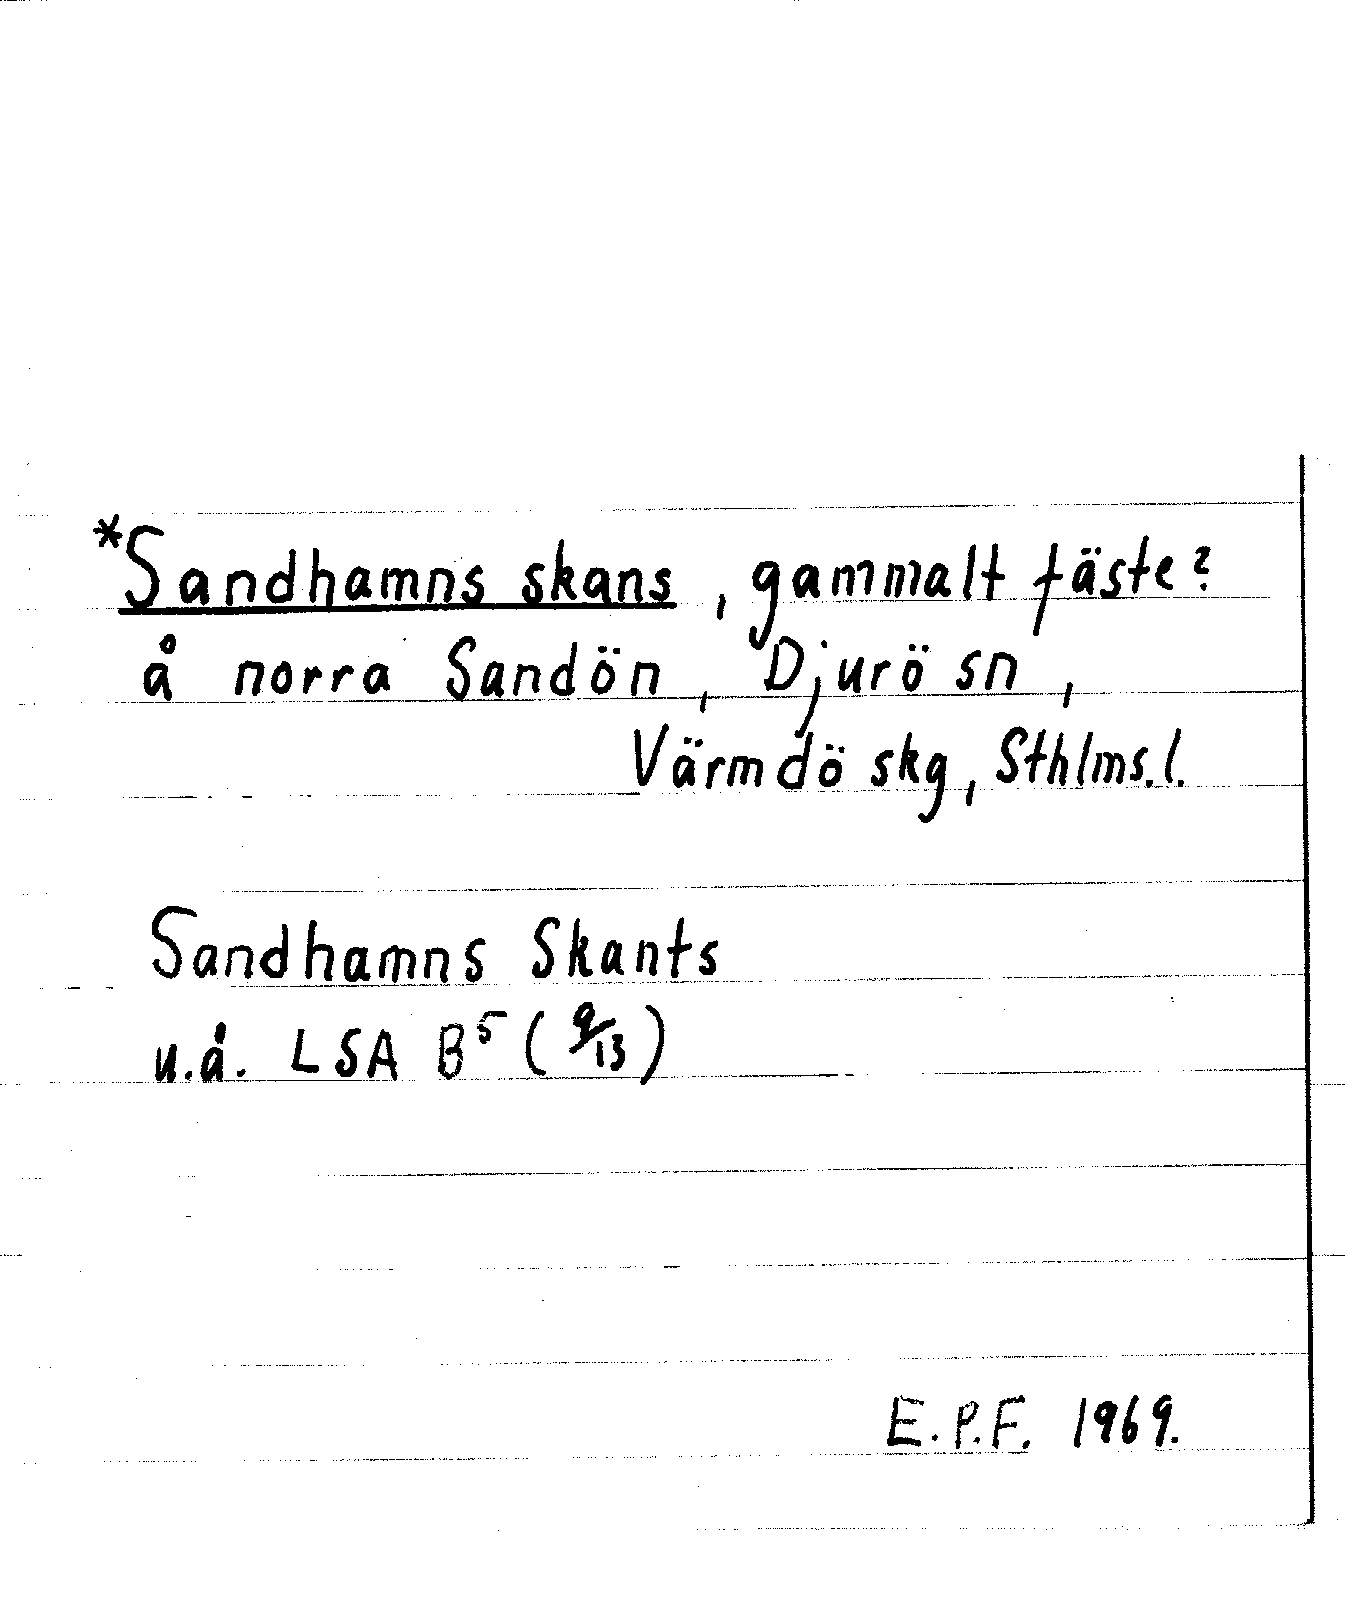 *Sandhamns skans, gammalt fäste?
å norra Sandön, Djurö sn,
Värmdö skg, Sthlms.l.
Sandhamns Skants
u.å. LSA B⁵ (9/13)
E.P.F. 1969.